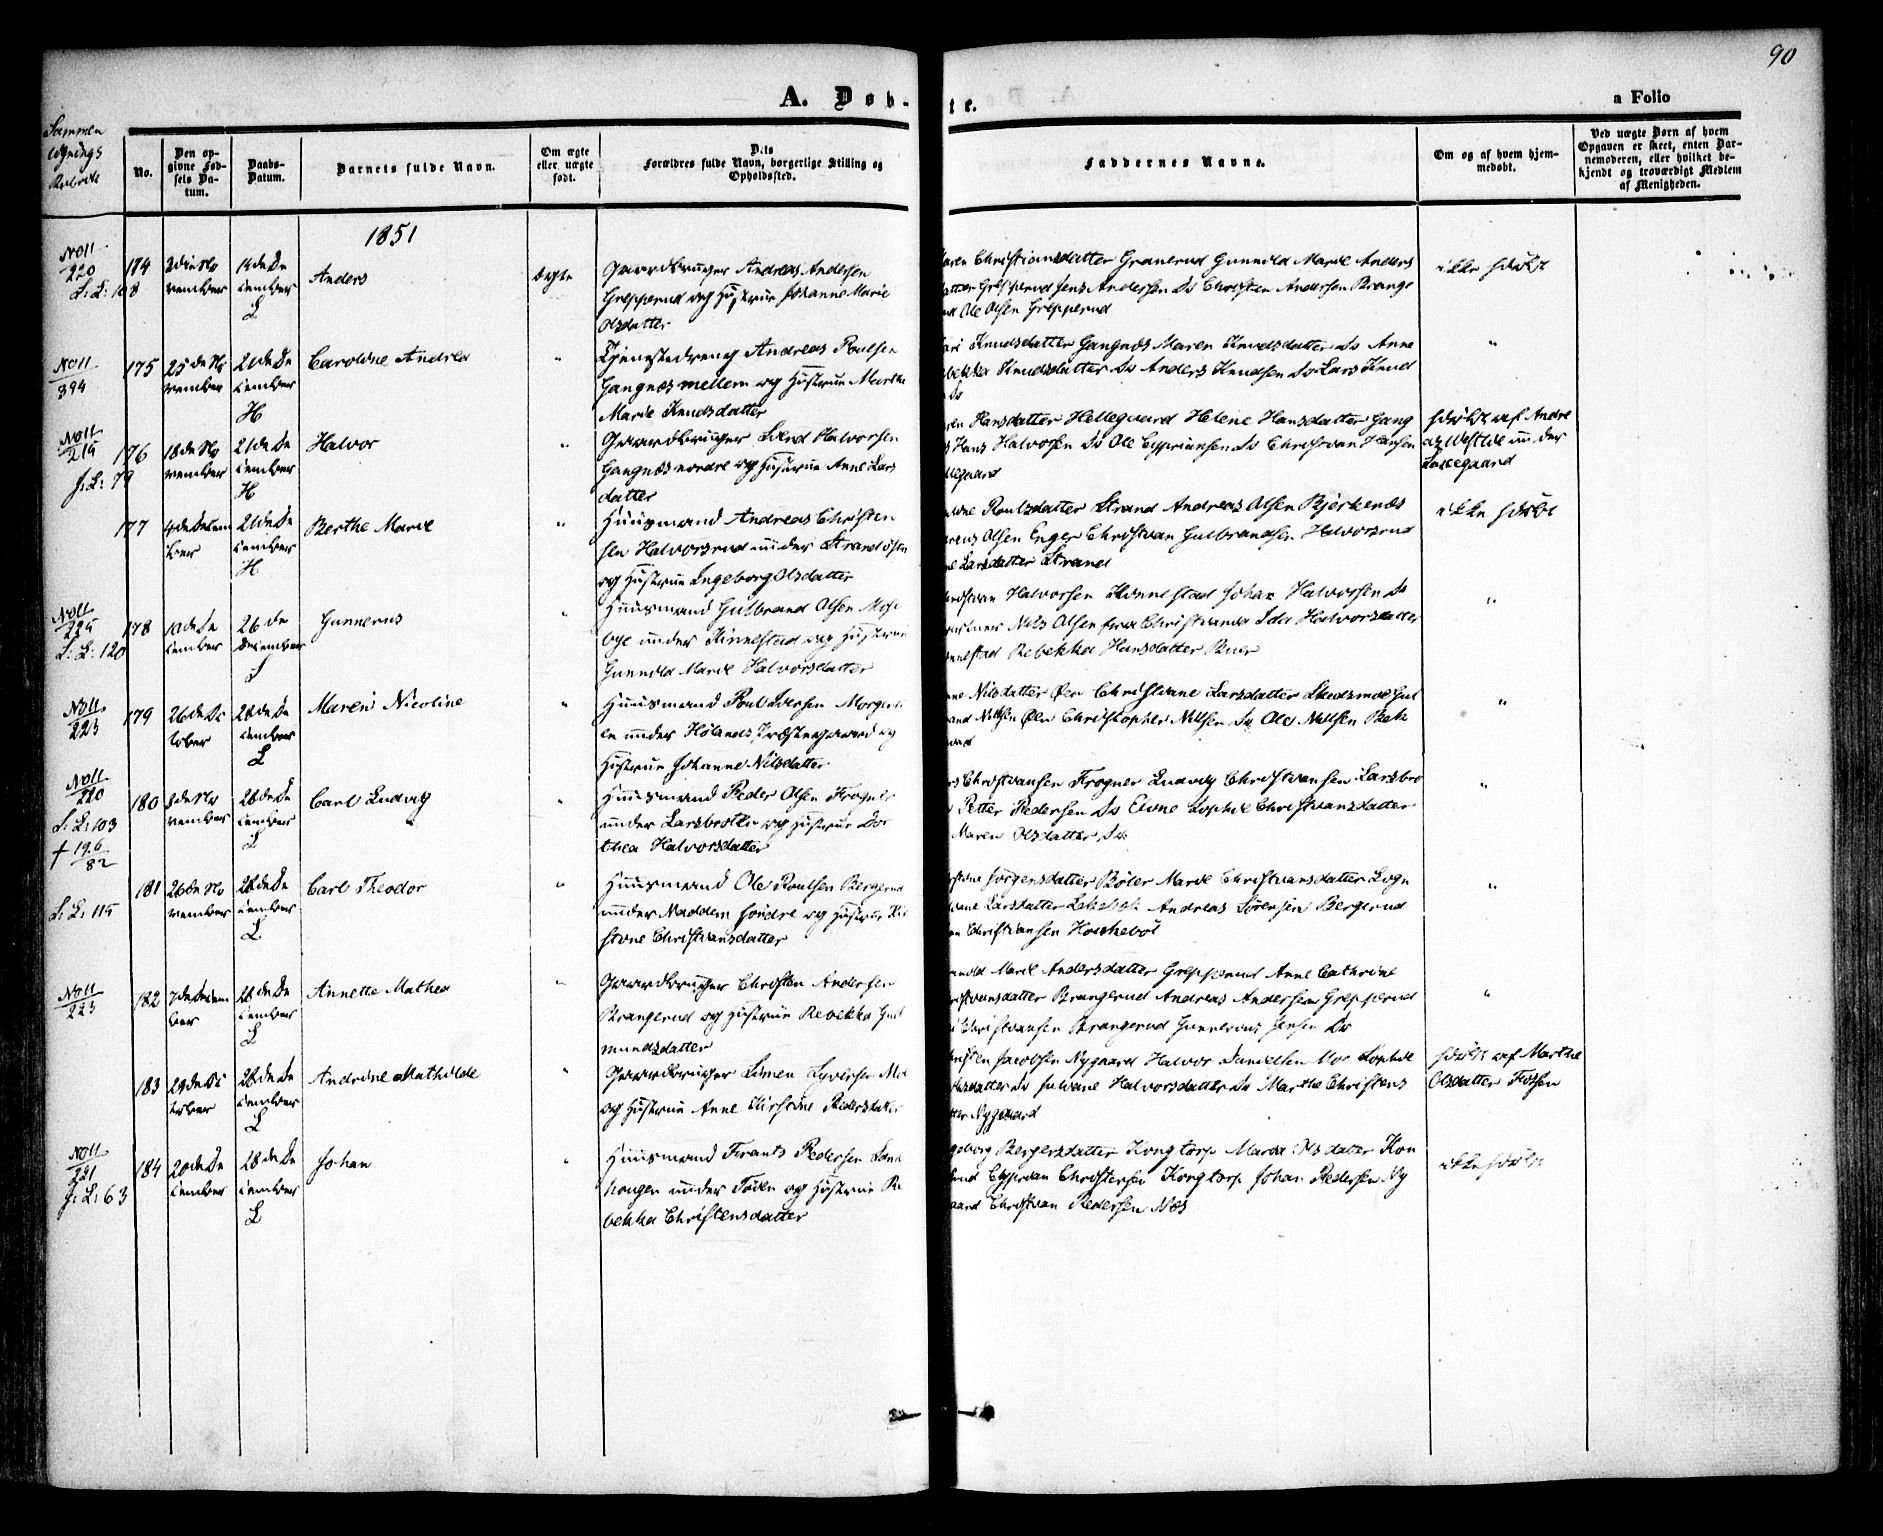 90
A. Døb-
te.
a Folio
Sammen
No.
Den op-
givne Fød-
sels Da-
tum.
Daabs-
Datum.
Barnets fulde Navn.
Om ægte
eller uægte
født.
Dets
Forældres fulde Navn, borgerlige Stilling og
Opholdssted.
Faddernes Navne.
Om og af hvem hjem-
medøbt.
Ved uægte Børn af hvem
Opgaven er skeet, enten Bar-
nemoderen, eller hvilket be-
kjendt og troværdigt Medlem
af Menigheden.
1851
Noll
220
174
vember
14de De
cember
L
Anders
ægte
Gaardbruger Andreas Andersen
Grepperud og Hustrue Johanne Marie
Olsdatter
Christiansdatter Granerud Gunnild Marie Anders
Grepperud Jens Andersen Do Christen Andersen Brange
Ole Olsen Grepperud
ikke hjdøbt
Noll
394
175
25de No
vember
21de De
cember
H
Caroline Andrea
"
Tjenestedreng Andreas Poulsen
Gangnæs mellem og Hustrue Marthe
Marie Knudsdatter
Knudsdatter Gangnæs Maren Knudsdatter Do Anne
Knudsdatter Do Anders Knudsen Do Lars Knud
Do
"
Noll
215
J: L: 79
176
18de No
vember
21de De
cember
H
Halvor
"
Gaardbruger Halvorsen
Gangnæs nordre og Hustrue Anne Lars
datter
Hansdatter Hellegaard Helene Hansdatter Gang
Hans Halvorsen Do Ole Cypriansen Do Christian Hansen
hjdøbt af Andre
under
177
4de Decem
ber
21de De
cember
H
Berthe Marie
"
Huusmand Andreas Christen
sen Halvorsrud under Strand
og Hustrue Ingeborg Olsdatter
Poulsdatter Strand Andreas Olsen Bjerkenæs
Olsen Enger Christian Gulbrandsen Halvorsrud
Larsdatter Strand
ikke hjdøbt
Noll
225
L: L: 120
178
cember
26de
December
Gunnerus
"
Huusmand Gulbrand Olsen Mose
bye under Kinnestad og Hustrue
Gunnild Marie Halvorsdatter
Halvorsen Kinnestad Johan Halvorsen Do
Nils Olsen fra Christiania Ida Halvorsdatter
Rebekka Hansdatter Buer
"
Noll
223
179
26de Oc
tober
28de De
cember
L
Maren Nicoline
"
Huusmand Poul Iversen Morgen
under Hølands Præstegaard og
Hustrue Johanne Nilsdatter
Nilsdatter Øen Christiane Larsdatter Skedsmoe Gul
Nilsen Øen Christopher Nilsen Do Ole Nilsen Bek
"
Noll
220
L: L: 103
† 19.6
82
180
vember
28de De
cember
L
Carl Ludvig
"
Huusmand Peder Olsen Frogner
under Larsbrotten og Hustrue Dor
thea Halvorsdatter
Christiansen Frogner Ludvig Christiansen Larsbro
Petter Pedersen Do Eline Sophie Christiansdatter
Maren Olsdatter Do
"
L: L: 115
181
26de No
vember
28de De
cember
L
Carl Theodor
"
Huusmand Ole Poulsen Bergerud
under Naddem søndre og Hustrue Kir
stine Christiansdatter
Jørgensdatter Bøler Marie Christiansdatter Sogn
Larsdatter Andreas Sørensen Bergerud
Christiansen
"
Noll
223
182
7de Decem
ber
28de De
cember
L
Annette Mathea
"
Gaardbruger Christen Andersen
Brangerud og Hustrue Rebekka Gud
mundsdatter
Marie Andersdatter Grepperud Anne Cathrine
Christiansdatter Brangerud Andreas Andersen Grepperud
Christiansen Brangerud Gunnerius Jensen Do
"
183
29de Oc
tober
28de De
cember
L
Andrine Mathilde
"
Gaardbruger Simen Syversen Moe
og Hustrue Anne Kirstine Pedersdatter
Jacobsen Nygaard Halvor Danielsen Moe Sophie
Do Juliane Halvorsdatter Do Marthe Christens
Nygaard
hjdøbt af Marthe
Olsdatter Fossen
Noll
221
J: L: 63
184
20de De
cember
28de De
cember
L
Johan
"
Huusmand Frants Pedersen Sand
haugen under Toven og Hustrue Re
bekka Christensdatter
Bergersdatter Kongtorp Maria Olsdatter Kon
Cyprian Christensen Kongtorp Johan Pedersen Ny
gaard Christian Pedersen Næs
ikke hjdøbt